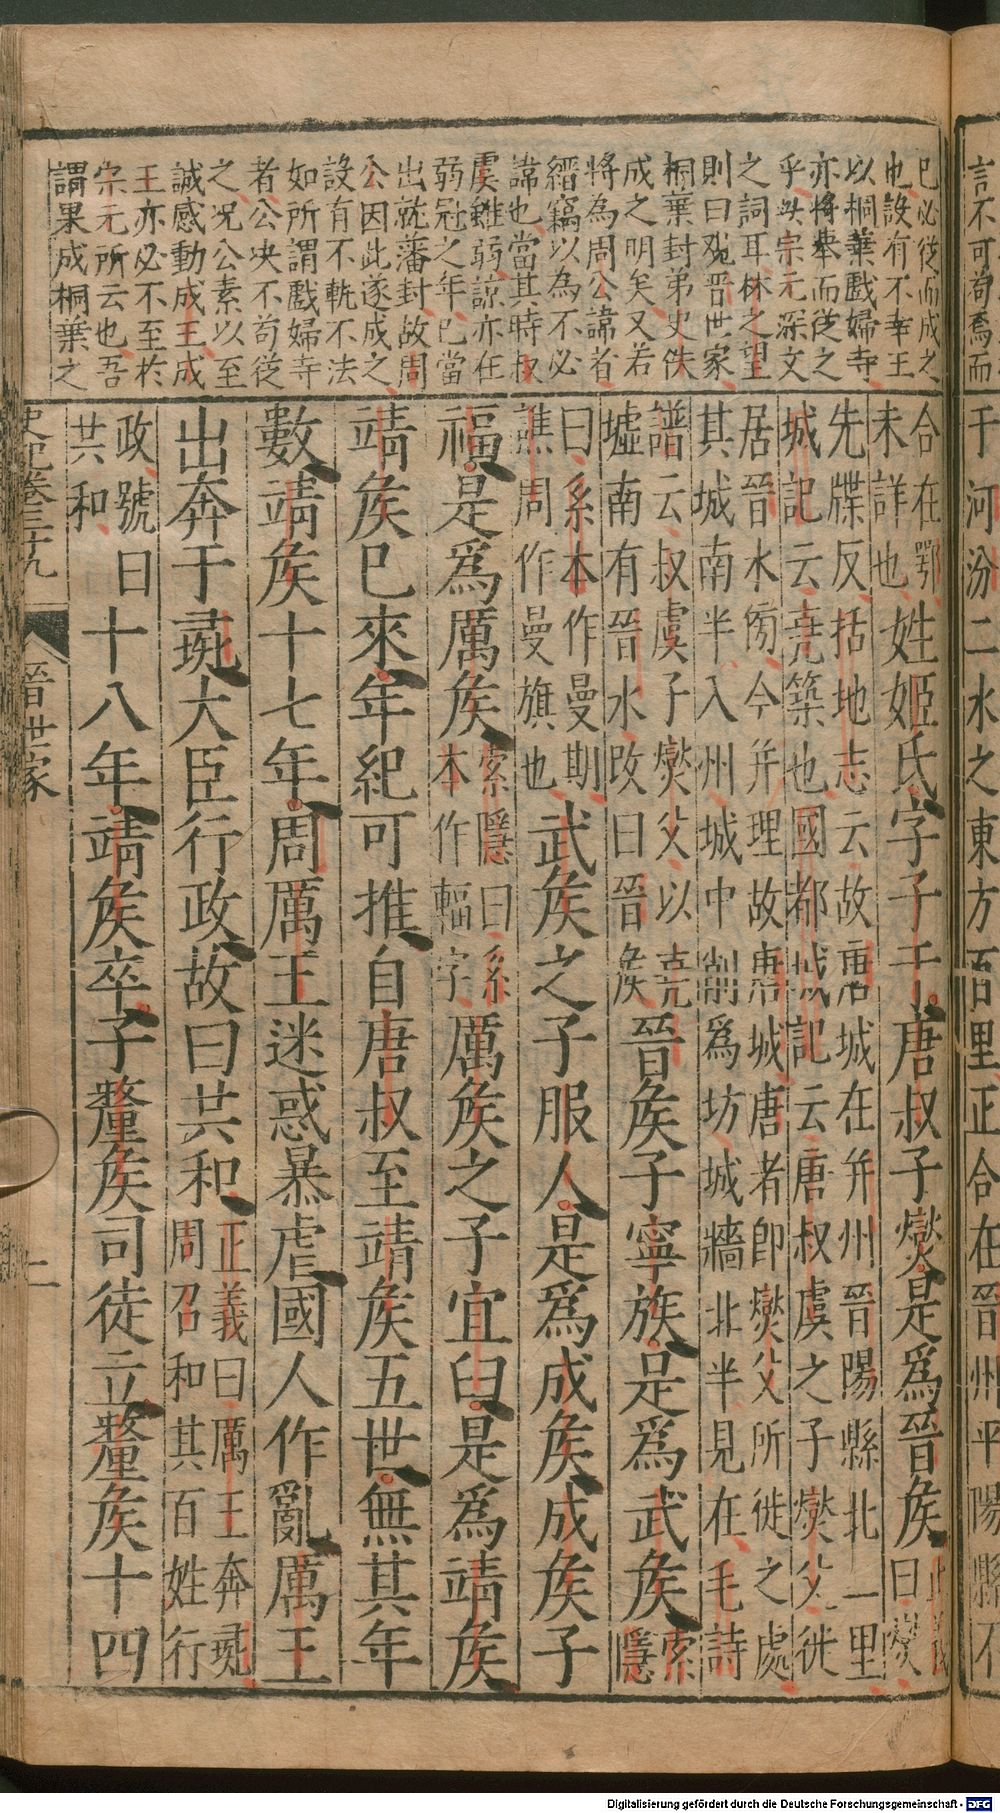 言不可苟焉而
于河汾二水之東方百里正合在晉州平陽縣不
已必從而成之
也設有不幸王
以桐葉戲婦寺
亦將舉而從之
乎此宗元深文
之詞耳林之望
則曰觀晉世家
桐葉封弟史佚
成之明矣又若
將為周公諱者
縉竊以為不必
諱也當其時叔
虞雖弱諒亦在
弱冠之年已當
出就藩封故周
公因此遂成之
設有不軌不法
如所謂戲婦寺
者公決不苟從
之况公素以至
誠感動成王成
王亦必不至於
宗元所云也吾
謂果成桐葉之
合在鄂
未詳也
姓姬氏字子于唐叔子燮是爲晉侯
正義
曰燮
先牒反括地志云故唐城在并州晉陽縣北二里
城記云堯築也國都城記云唐叔虞之子燮父徙
居晉水傍今并理故唐城唐者即燮父所徙之處
其城南半入州城中削爲坊城牆北半見在毛詩
譜云叔虞子燮父以堯
墟南有晉水改曰晉侯
晉侯子寧族是爲武侯
索
隱
曰系本作曼期
譙周作曼旗也
武侯之子服人是爲成侯成侯子
福是爲厲侯
索隱曰系
本作輻字
厲侯之子宜臼是爲靖侯
靖侯已來年紀可推自唐叔至靖侯五世無其年
數靖侯十七年周厲王迷惑暴虐國人作亂厲王
出奔于彘大臣行政故曰共和
正義曰厲王奔彘
周召和其百姓行
政號曰
共和
十八年靖侯卒子釐侯司徒立釐侯十四
史記卷三十九
晉世家
二
Digitalisierung gefördert durch die Deutsche Forschungsgemeinschaft - DFG